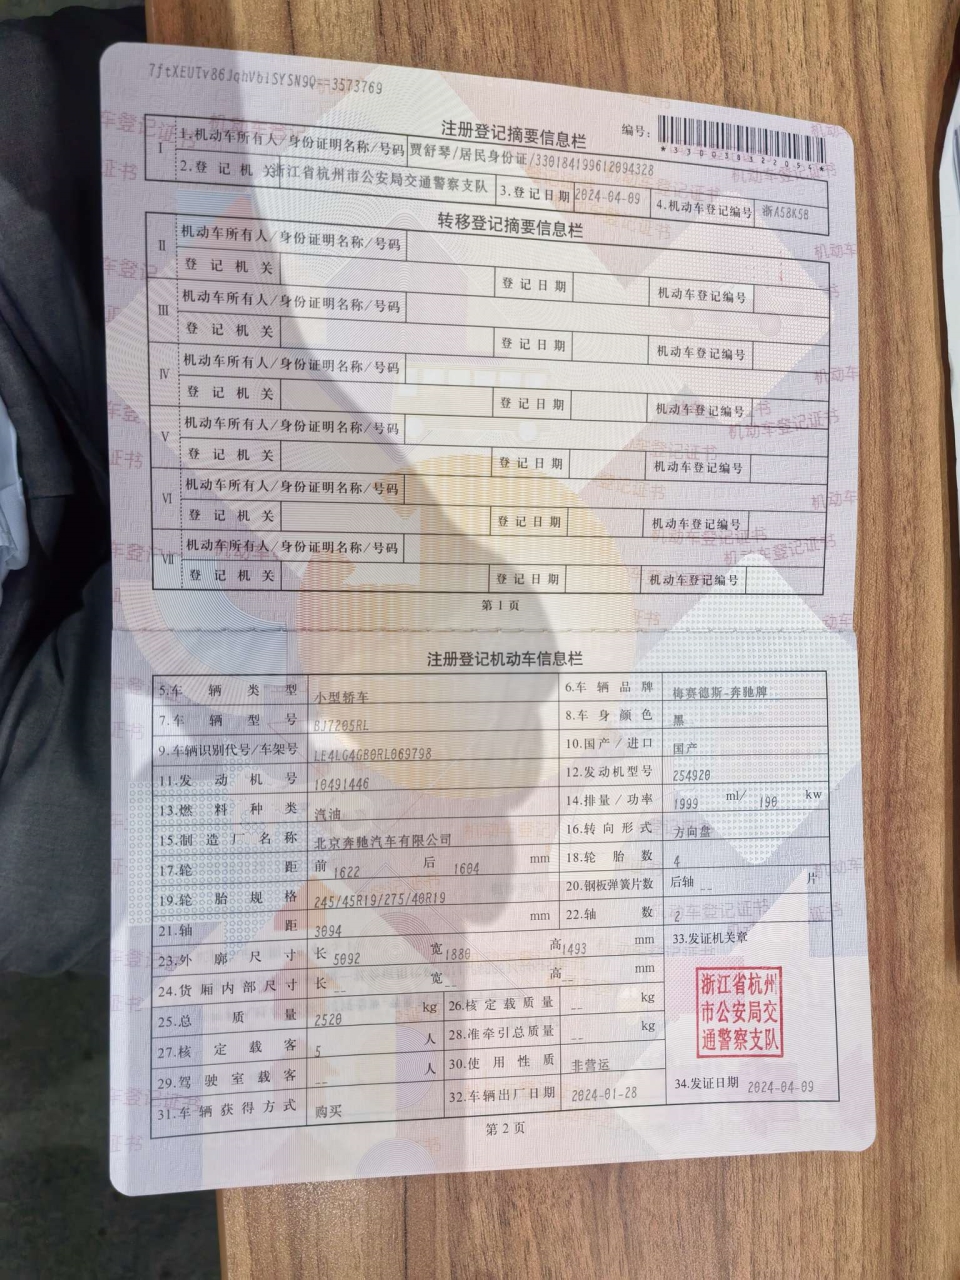 7ftXEUTv86JqhVbiSYSN9Q==3573769
注册登记摘要信息栏
编号：
*330030322054*
I
1.机动车所有人/身份证明名称/号码 贾舒琴/居民身份证/330184199612094328
2.登记机关 浙江省杭州市公安局交通警察支队 3.登记日期 2024-04-09 4.机动车登记编号 浙A58K58
转移登记摘要信息栏
II 机动车所有人/身份证明名称/号码
登记机关 登记日期 机动车登记编号
III 机动车所有人/身份证明名称/号码
登记机关 登记日期 机动车登记编号
IV 机动车所有人/身份证明名称/号码
登记机关 登记日期 机动车登记编号
V 机动车所有人/身份证明名称/号码
登记机关 登记日期 机动车登记编号
VI 机动车所有人/身份证明名称/号码
登记机关 登记日期 机动车登记编号
VII 机动车所有人/身份证明名称/号码
登记机关 登记日期 机动车登记编号
第1页
注册登记机动车信息栏
5.车辆类型 小型轿车 6.车辆品牌 梅赛德斯-奔驰牌
7.车辆型号 BJ7205RL 8.车身颜色 黑
9.车辆识别代号/车架号 LE4LG4GB0RL069798 10.国产/进口 国产
11.发动机号 10491446 12.发动机型号 254920
13.燃料种类 汽油 14.排量/功率 1999 ml/ 190 kw
15.制造厂名称 北京奔驰汽车有限公司 16.转向形式 方向盘
17.轮距 前 1622 后 1604 mm 18.轮胎数 4
19.轮胎规格 245/45R19/275/40R19 20.钢板弹簧片数 后轴 -- 片
21.轴距 3094 mm 22.轴数 2
23.外廓尺寸 长 5092 宽 1880 高 1493 mm 33.发证机关章
24.货厢内部尺寸 长 -- 宽 -- 高 -- mm
25.总质量 2520 kg 26.核定载质量 -- kg
27.核定载客 5 人 28.准牵引总质量 -- kg
29.驾驶室载客 -- 人 30.使用性质 非营运
31.车辆获得方式 购买 32.车辆出厂日期 2024-01-28 34.发证日期 2024-04-09
浙江省杭州
市公安局交
通警察支队
第2页